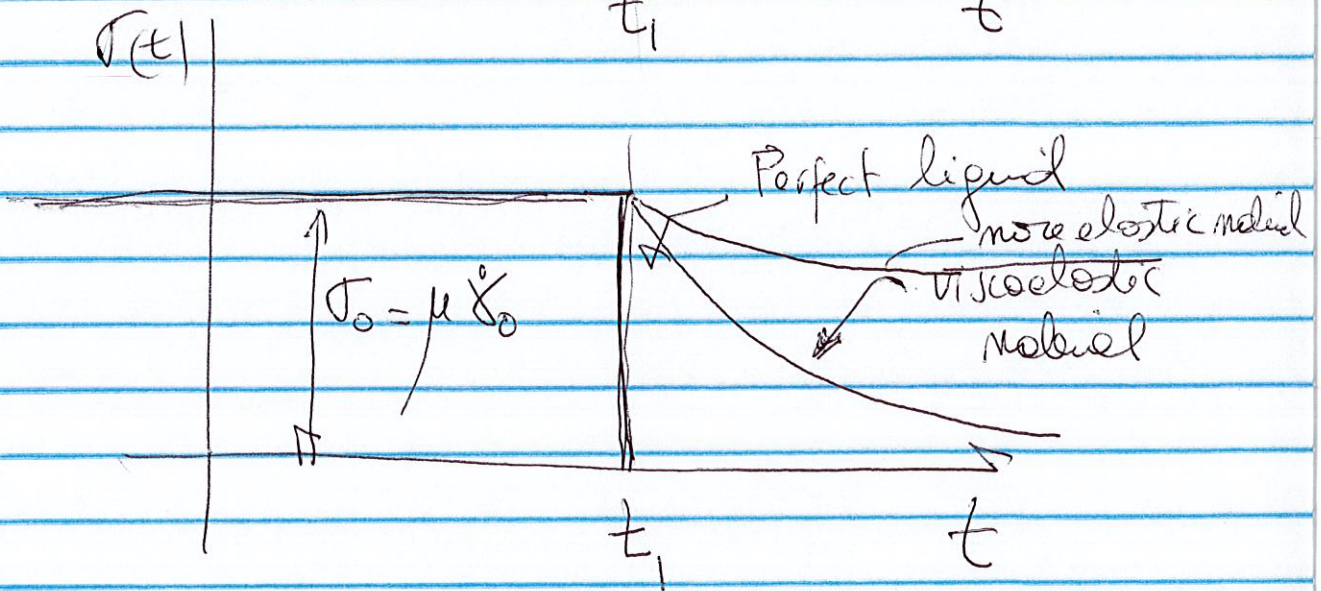 t₁ t
σ(t)
Perfect liquid
more elastic
σ₀ = μ γ̇₀
viscoelastic
material
t₁ t